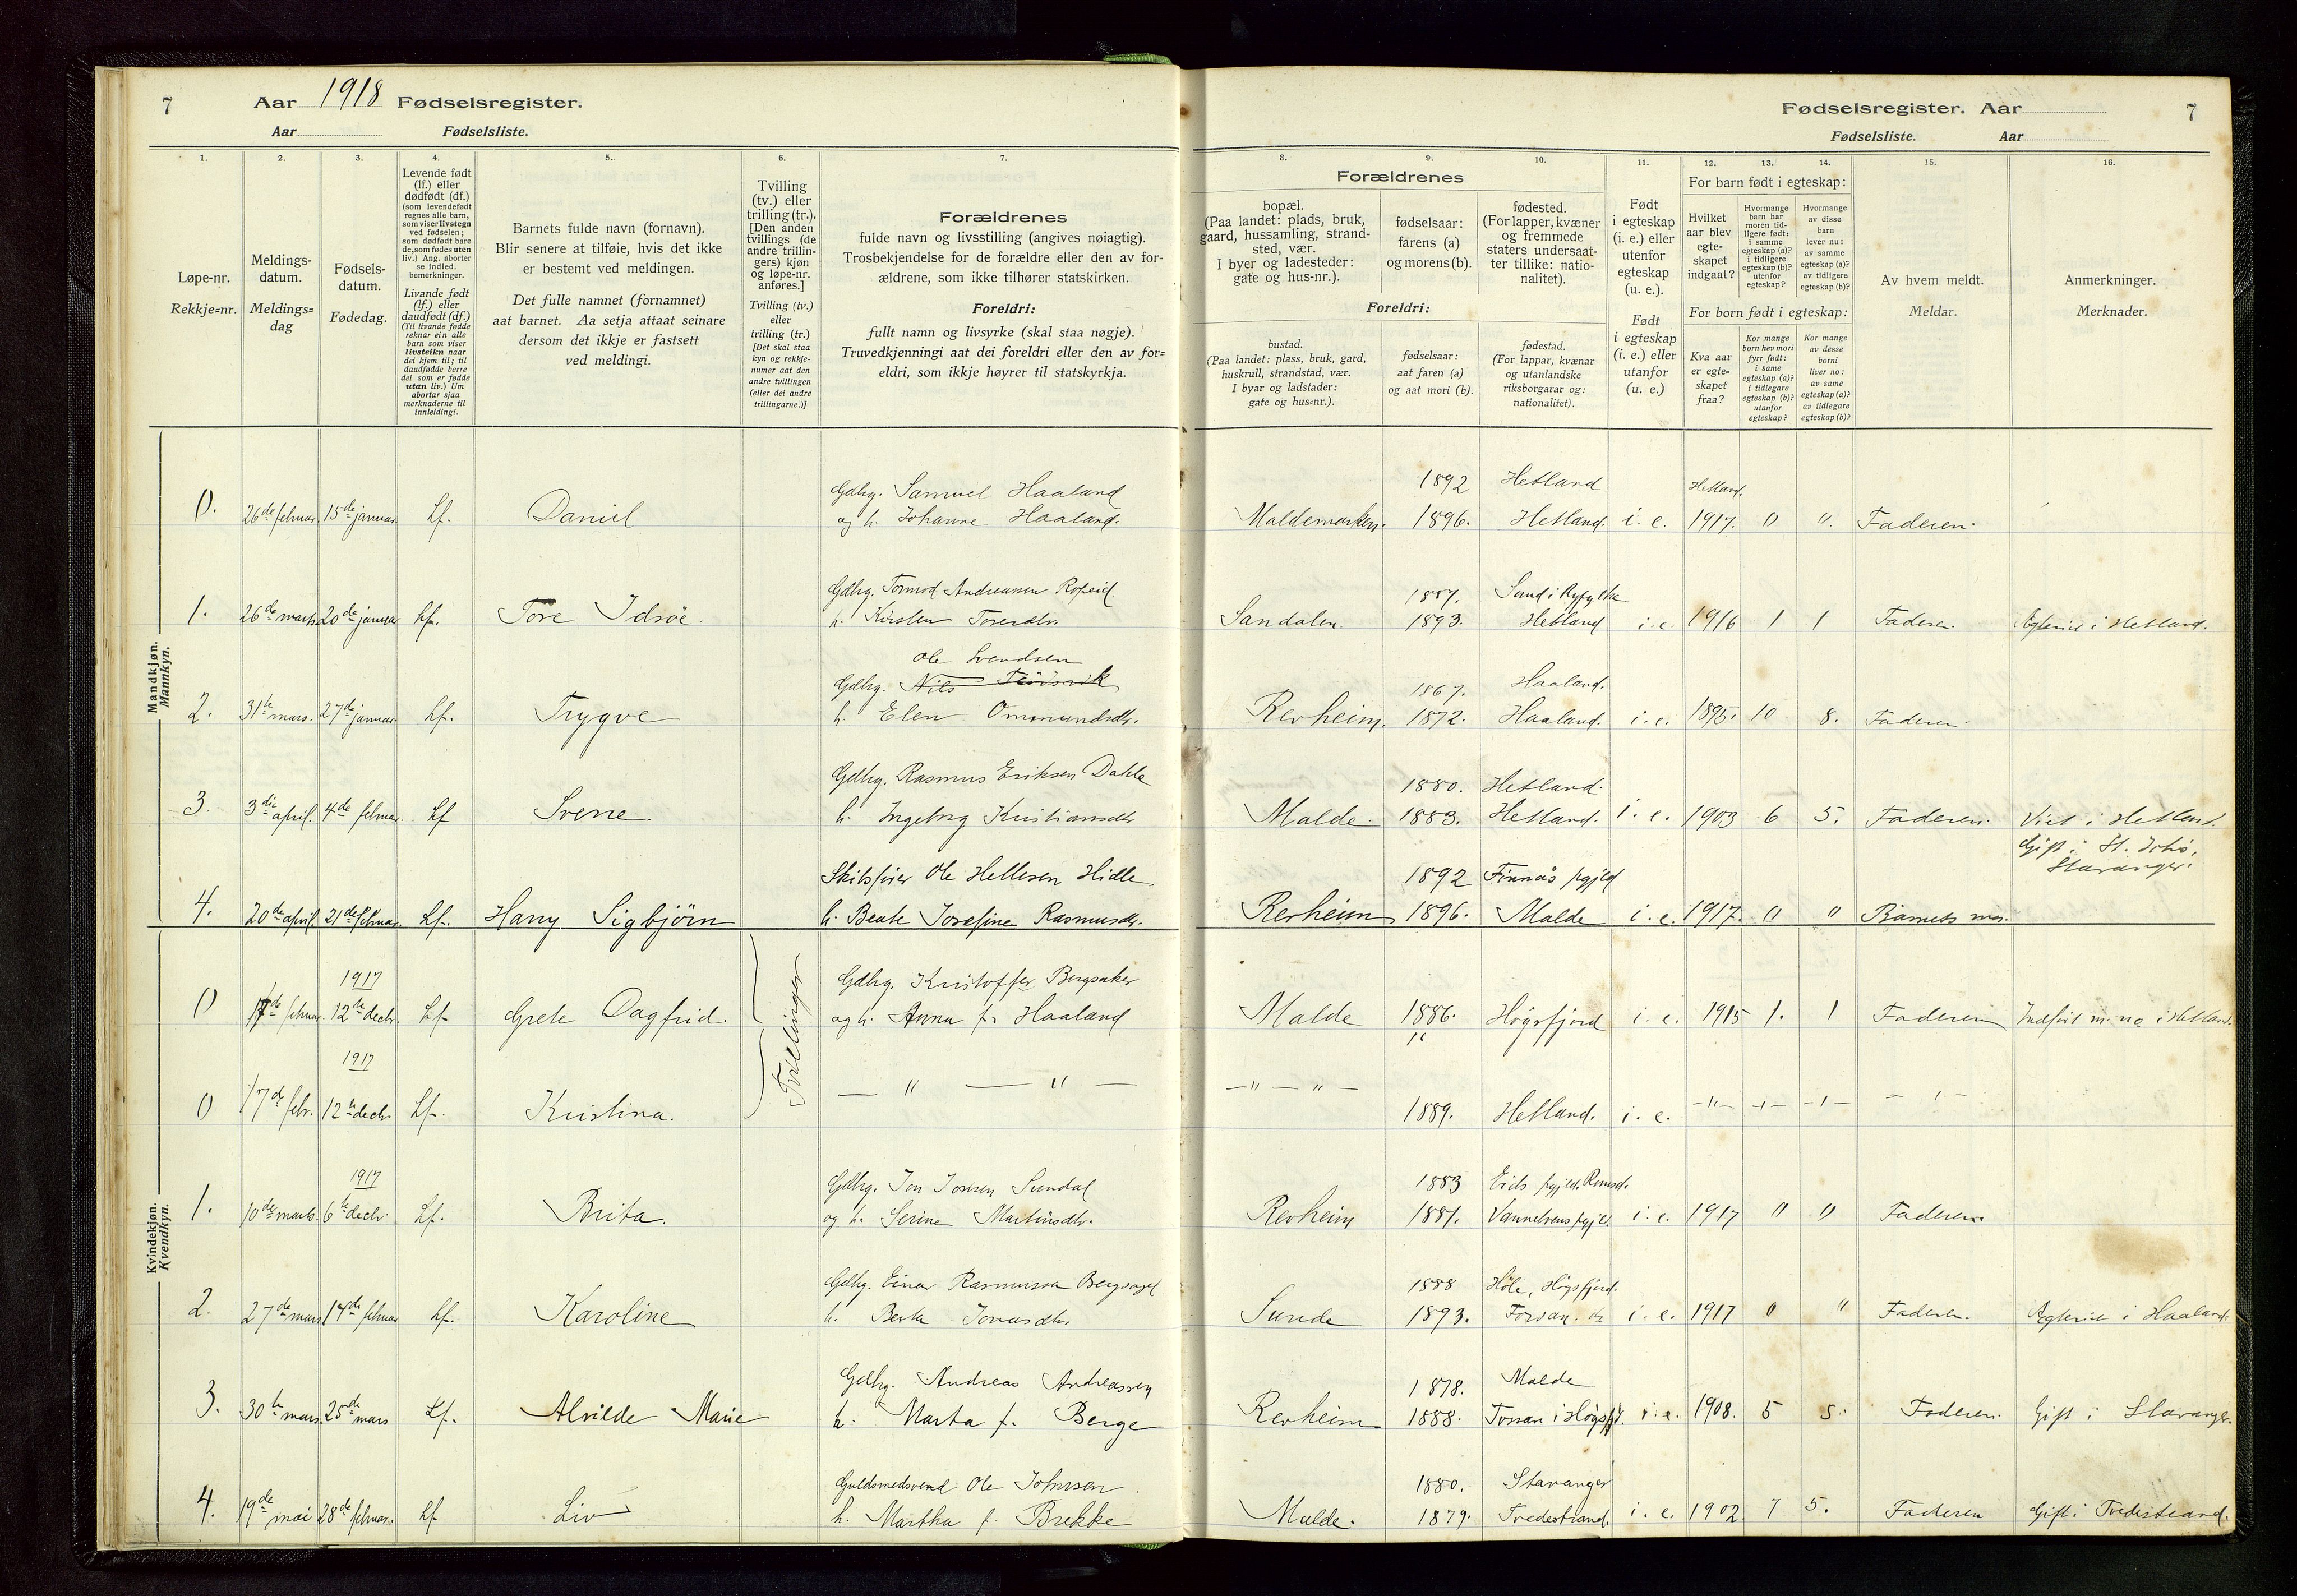 7 Aar 1918 Fødselsregister.
Aar Fødselsliste.
Fødselsregister. Aar 7
Fødselsliste. Aar
1. 2. 3. 4. 5. 6. 7. 8. 9. 10. 11. 12. 13. 14. 15. 16.
Løpe-nr.
Rekkje=nr.
Meldings-
datum.
Meldings=
dag
Fødsels-
datum.
Fødedag.
Levende født
(lf.) eller
dødfødt (df.)
(som levendefødt
regnes alle barn,
som viser livstegn
ved fødselen;
som dødfødt bare
de, som fødes uten
liv.) Ang. aborter
se indled.
bemerkninger.
Livande født
(lf.) eller
daudfødt (df.)
(Til livande fødde
reknar ein alle
barn som viser
livsteikn naar
dei kjem til; til
daudfødde berre
dei som er fødde
utan liv.) Um
abortar sjaa
merknaderne til
innleidingi.
Barnets fulde navn (fornavn).
Blir senere at tilføie, hvis det ikke
er bestemt ved meldingen.
Det fulle namnet (fornamnet)
aat barnet. Aa setja attaat seinare
dersom det ikkje er fastsett
ved meldingi.
Tvilling
(tv.) eller
trilling (tr.).
[Den anden
tvillings (de
andre trillin-
gers) kjøn
og løpe-nr.
anføres.]
Tvilling (tv.)
eller
trilling (tr.)
[Det skal staa
kyn og rekkje-
numer aat den
andre tvillingen
(eller dei andre
trillingarne.)]
Forældrenes
fulde navn og livsstilling (angives nøiagtig).
Trosbekjendelse for de forældre eller den av for-
ældrene, som ikke tilhører statskirken.
Foreldri:
fullt namn og livsyrke (skal staa nøgje).
Truvedkjenningi aat dei foreldri eller den av for=
eldri, som ikkje høyrer til statskyrkja.
Forældrenes
bopæl.
(Paa landet: plads, bruk,
gaard, hussamling, strand-
sted, vær.
I byer og ladesteder:
gate og hus-nr.).
fødselsaar:
farens (a)
og morens (b).
fødested.
(For lapper, kvæner
og fremmede
staters undersaat-
ter tillike: natio-
nalitet).
Foreldri:
bustad.
(Paa landet: plass, bruk, gard,
huskrull, strandstad, vær.
I byar og ladstader:
gate og hus=nr.).
fødselsaar:
aat faren (a)
og aat mori (b).
fødestad.
(For lappar, kvænar
og utanlandske
riksborgarar og:
nationalitet).
Født
i egteskap
(i. e.) eller
utenfor
egteskap
(u. e.).
Født
i egteskap
(i. e.) eller
utanfor
(u. e.)
For barn født i egteskap:
Hvilket
aar blev
egte-
skapet
indgaat?
Hvormange
barn har
moren tid-
ligere født:
i samme
egteskap (a)?
i tidligere
egteskap (b)?
utenfor
egteskap?
Hvormange
av disse
barn
lever nu:
av samme
egteskap (a)?
av tidligere
egteskap (b)?
For born født i egteskap:
Kva aar
er egte=
skapet
fraa?
Kor mange
born hev mori
fyrr født:
i same
egteskap (a)?
i tidlegare
egteskap (b)?
utanfor
egteskap?
Kor mange
av desse
borni
liver no:
av same
egteskap (a)?
av tidlegare
egteskap (b)?
Av hvem meldt.
Meldar.
Anmerkninger.
Merknader.
Mandkjøn.
Mannkyn.
Gdbrg. Samuel Haaland 1892 Hetland Hetland.
0. 26de februar. 15de januar. Lf. Daniel og h. Johanne Haaland. Maldemarken. 1896. Hetland. i. e. 1917. 0 ". Faderen.
Gdbrg. Tormod Andreassen Ropeid 1887. Sand i Ryfylke
1. 26de marts 20de januar Lf. Tore Idsöe. h. Kirsten Toresdtr. Sandalen. 1893. Hetland i. e. 1916 1 1 Faderen. Egteviet i Hetland.
Ole Svendsen
Gdbrg. Nils 1867. Haaland.
2. 31te mars. 27de januar. Lf. Trygve h. Elen Ommundsdtr. Revheim. 1872. Haaland. i. e. 1895. 10 8. Faderen.
Gdbrg. Rasmus Eriksen Dahle 1880. Hetland.
3. 3die april. 4de februar. Lf Sverre h. Ingebrg Kristiansdtr Malde. 1883. Hetland. i. e. 1903 6 5. Faderen. Viet i Hetland.
Skibsfører Ole Hellesen Hidle 1892 Finnås pgjld Gift i St. Joh.,
Stavanger.
4. 20de april. 21de februar. Lf. Harry Sigbjörn h. Beate Josefine Rasmusdr. Revheim 1896. Malde i. e. 1917. 0 " Barnets mor.
Kvindekjøn.
Kvendkyn.
1917 Gdbrg. Kristoffer Bergsaker
0 17de februar. 12te decbr. Lf. Grete Dagfrid. Tvillinger og h. Anna f. Haaland Malde 1886. Högsfjord i. e. 1915 1. 1 Faderen
1917 — " — " — —"—"—
0 17de febr. 12te decbr. Lf. Kristina. 1889. Hetland. i. e. —"—
1917 Gdbrg. Jon Jonsen Sundal 1883 Eids pgjld. Romsd.
1. 10de marts. 6te decbr. Lf. Brita. og h. Serine Martinsdtr. Revheim 1881. Vannelvens pgjld. i. e. 1917 " " Faderen
Gdbrg. Einar Rasmussen Bergsagel 1888 Höle, Högsfjord.
2. 27de mars 14de februar Lf. Karoline h. Berta Jonasdtr. Sunde 1893. Forsan. do i. e. 1917 0 " Faderen. Egteviet i Haaland.
Gdbrg. Andreas Andreassen 1878. Malde
3. 30te mars. 25de mars Lf. Alvilde Marie h. Marta f. Berge Revheim 1888. Forsan i Högsfjd. i. e. 1908. 5 5. Faderen. Gift i Stavanger.
Guldsmedsvend Ole Johnsen 1880. Stavanger
4. 19de mai 28de februar. Lf Liv h. Martha f. Brekke Malde. 1879. Tvedestrand. i. e. 1902. 7 5. Faderen Gift i Tvedestrand.